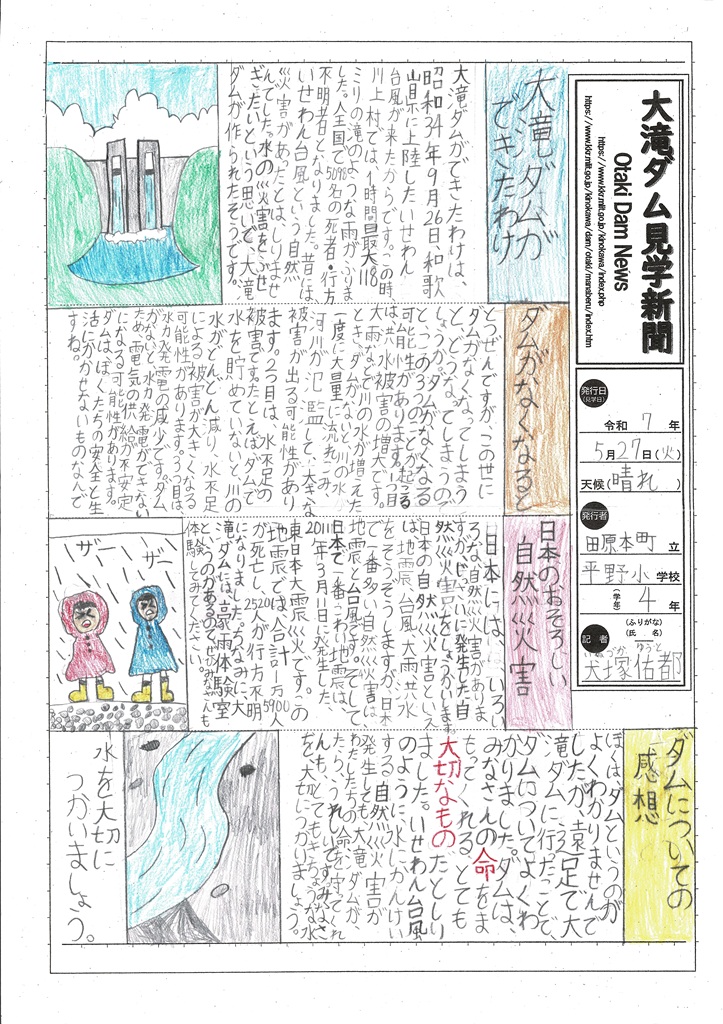 大滝ダム見学新聞
Otaki Dam News
https://www.kkr.mlit.go.jp/kinokawa/index.php
https://www.kkr.mlit.go.jp/kinokawa/dam/otaki/manaberu/index.htm
発行日
(見学日)
令和 7 年
5月27日(火)
天候(晴れ)
発行者
田原本町 立
平野小 学校
(学年) 4 年
記者
(ふりがな)
(氏 名)
いぬづか ゆうと
犬塚佑都
大滝ダムが
できたわけ
大滝ダムができたわけは、
昭和34年9月26日、和歌
山県に上陸したいせわん
台風が来たからです。この時、
川上村では、1時間最大118
ミリの滝のような雨がふりま
した。全国で5098名の死者・行方
不明者となりました。昔に
いせわん台風という自然
災害があったとは、しりませ
んでした。水の災害をふせ
ぎたいという思いで、大滝
ダムが作られたそうです。
ダムがなくなると
とつぜんですが、この世に
ダムがなくなってしまう
と、どうなってしまうので
しょうか。ダムがなくなる
と、この3つのことが起こる
可能性があります。1つ目
は、洪水被害の増大です。
大雨などで川の水が増えた
とき、ダムがないと、川の水が
一度に大量に流れこみ、
河川が氾監し、大きな
被害が出る可能性があり
ます。2つ目は、水不足の
被害です。たとえば、ダムで
水を貯めていないと、川の
水がどんどん減り、水不足
による被害が大きくなる
可能性があります。3つ目は、
水力発電の減少です。ダム
がないと、水力発電ができない
ため、電気の供給が不安定
になる可能性があります。
ダムは、ぼくたちの安全と生
活にかかせないものなんで
すね。
日本のおそろしい
自然災害
日本には、いろい
ろな自然災害がありま
すが、じっさいに発生した自
然災害をしょうかいします。
日本の自然災害といえ
ば、地震、台風、大雨、洪水
をそうぞうしますが、日本
で一番多い自然災害は、
地震と台風です。そして、
日本で一番こわい地震は、
2011年3月11日に発生した、
東日本大震災です。この
地震では、合計1万5900人
が死亡し、2520人が行方不明
になりました。ちなみに、大
滝ダムには、豪雨体験室
というのがあるのでぜひみなさんも
体験してみてください。
ザー
ザー
ダムについての
感想
ぼくは、ダムというのが
よくわかりませんで
したが、遠足で大
滝ダムに行ったことで、
ダムについてよくわ
かりました。ダムは、
みなさんの命をま
もってくれる、とても
大切なものだとしり
ました。いせわん台風
のように、水にかんけい
する自然災害が
発生しても、大滝ダムが、
わたしたちの命を守ってくれ
たら、うれしいですね。みなさ
んも、とてもきちょうな水
を大切につかいましょう。
水を大切に
つかいましょう。